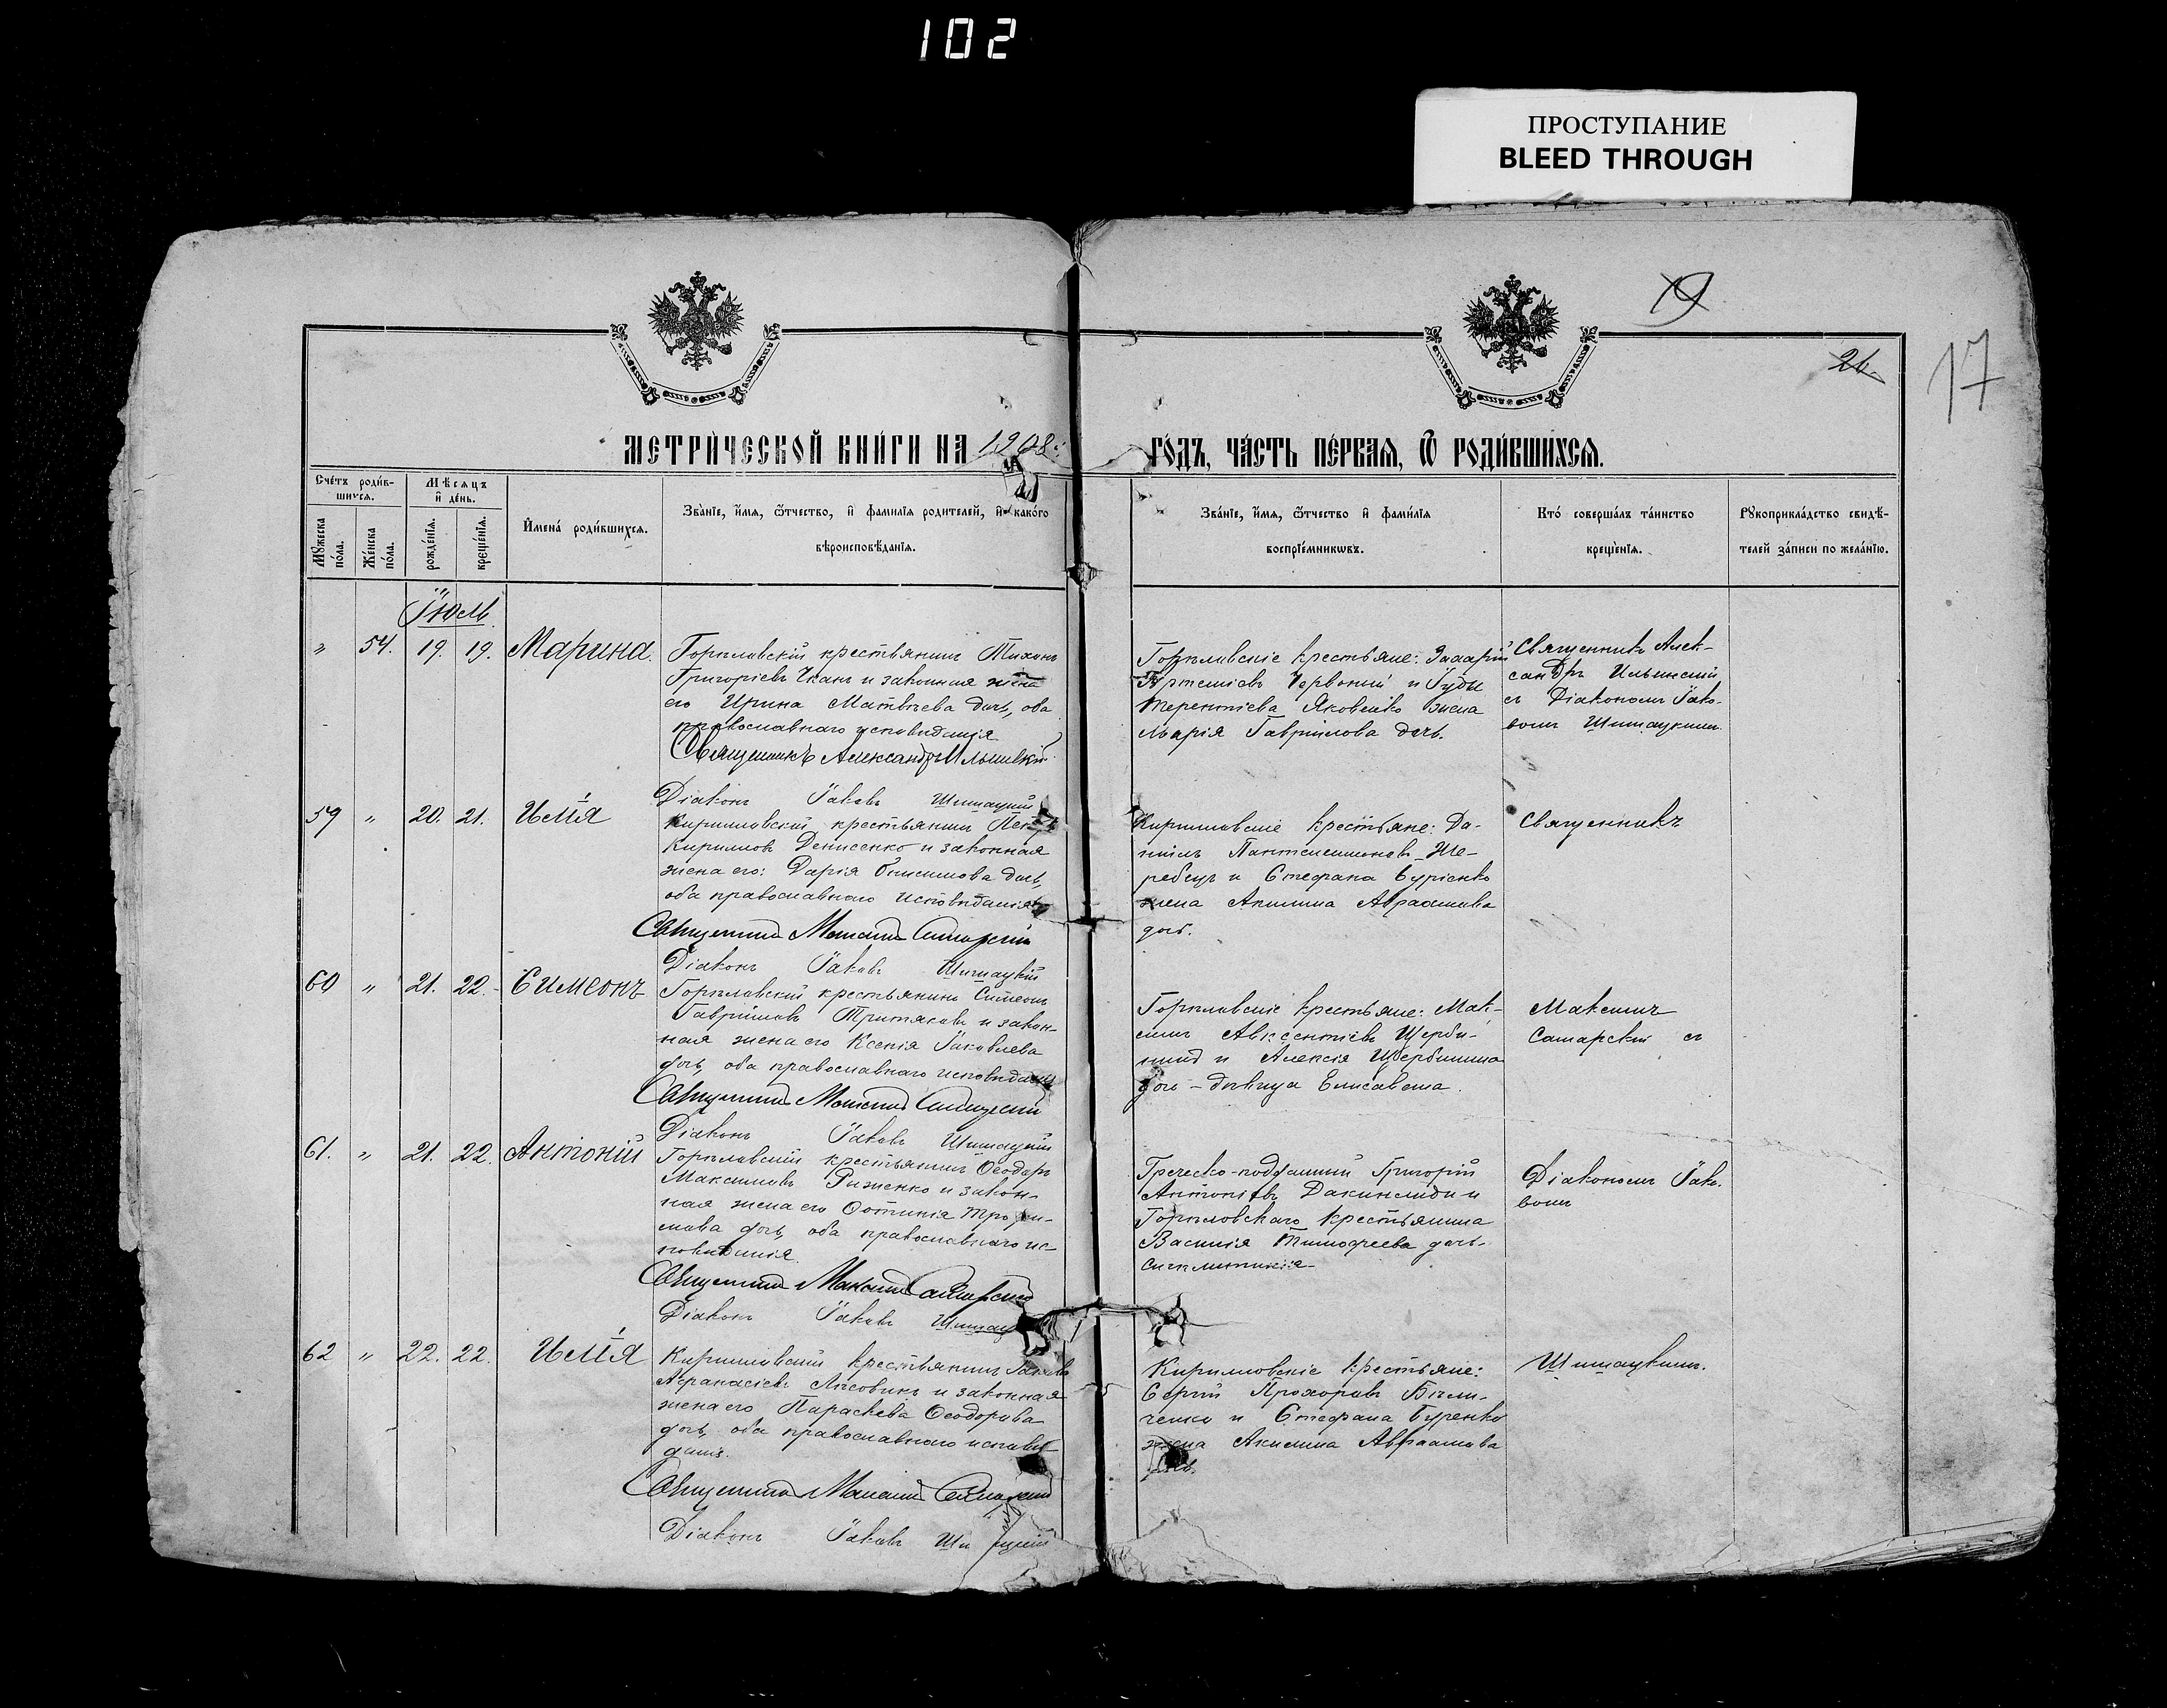 102
ПРОСТУПАНИЕ
BLEED THROUGH
19
24
17
МЕТРИ́ЧЕСКОЙ КНИ́ГИ НА 1908 ГО́ДЪ, ЧА́СТЬ ПЕ́РВАѦ, Ѿ РОДИ́ВШИХСѦ.
Сче́тъ роди́в-
шихсѧ.
Мѣ́сѧцъ
и҆ де́нь.
Мꙋ́жеска по́ла.
Же́нска по́ла.
рожде́нїѧ.
креще́нїѧ.
И҆мена̀ роди́вшихсѧ.
Зва́нїе, и҆́мѧ, ѻ҆́тчество, и҆ фами́лїѧ роди́телей, и҆ како́гѡ
вѣроисповѣ́данїѧ.
Зва́нїе, и҆́мѧ, ѻ҆́тчество и҆ фами́лїѧ
воспрїе́мникѡвъ.
Кто̀ соверша́лъ та́инство
креще́нїѧ.
Рꙋкоприкла́дство свидѣ́-
телей за́писи по жела́нїю.
Іюль
" 54. 19. 19. Марина.
Горѣловскій крестьянинъ Тихонъ
Григоріевъ Чканъ и законная жена
его Ирина Матвѣева дочь, оба
православнаго исповѣданія
Священникъ Александръ Ильинскій
Діаконъ Іаковъ Шишацкій
Горѣловскіе крестьяне: Захарій
Артеміевъ Червоный и Гуды
Терентіева Яковенко жена
Марія Гавріилова дочь.
Священникъ Алек-
сандръ Ильинскій
съ Діакономъ Іако-
вомъ Шишацкимъ.
59 " 20. 21. Илія
Кирилловскій крестьянинъ
Кирилловъ Денисенко и законная
жена его: Дарія Онисимова дочь,
оба православнаго исповѣданія
Священникъ Максимъ Самарскій
Діаконъ Іаковъ Шишацкій
Кирилловскіе крестьяне: Да-
ніилъ Пантелеимоновъ Же-
ребецъ и Стефана Буріенко
жена Акилина Авраамова
дочь.
Священникъ
60 " 21. 22. Симеонъ
Горѣловскій крестьянинъ Симеонъ
Гавріиловъ Третяковъ и закон-
ная жена его Ксенія Іаковлева
дочь, оба православнаго исповѣданія
Священникъ Максимъ Самарскій
Діаконъ Іаковъ Шишацкій
Горѣловскіе крестьяне: Мак-
симъ Авксентіевъ Щерби-
нинъ и Алексія Щербинина
дочь - дѣвица Елисавета.
Максимъ
Самарскій съ
61. " 21. 22. Антоній
Горѣловскій крестьянинъ Ѳеодоръ
Максимовъ Риженко и закон-
ная жена его Фотинія Трофи-
мова дочь, оба православнаго ис-
повѣданія
Священникъ Максимъ Самарскій
Діаконъ Іаковъ
Греческо-подданный Григорій
Антоніевъ и
Горѣловскаго крестьянина
Василія Тимофеева дочь
Синклитикія
Діакономъ Іако-
вомъ
62 " 22. 22. Илія
Кирилловскій крестьянинъ Іаковъ
Афанасіевъ Лѣсовикъ и законная
жена его Параскева Ѳеодорова
дочь, оба православнаго исповѣ-
данія.
Священникъ Максимъ Самарскій
Діаконъ Іаковъ
Кирилловскіе крестьяне:
Сергій Прохоровъ Бѣли-
ченко и Стефана Буренко
жена Акилина Авраамова
дочь.
Шишацкимъ.